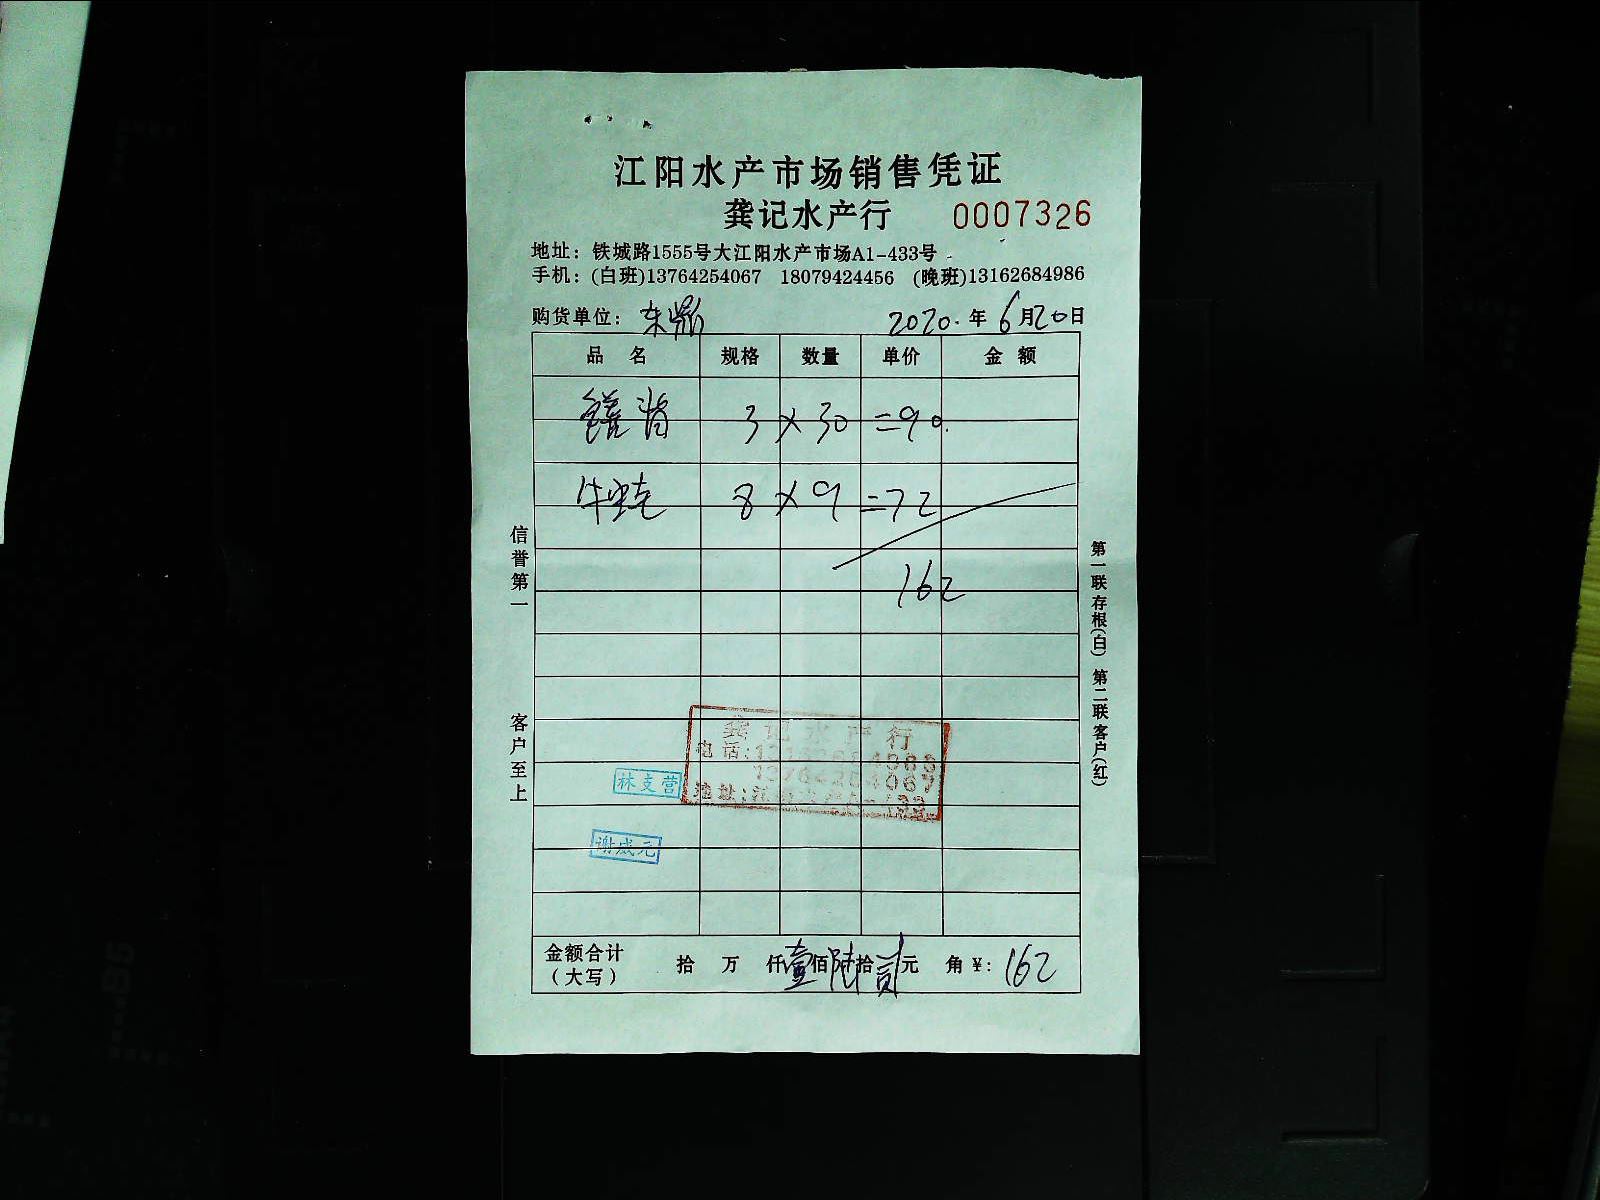 江阳水产市场销售凭证
龚记水产行 0007326
地址：铁城路1555号大江阳水产市场A1-433号
手机：(白班)13764254067 18079424456 (晚班)13162684986
购货单位：东鼎 2020.年6月20日
品名 规格 数量 单价 金额
3×30=90.
牛蛙 8×9=72
162
信誉第一
客户至上
第一联存根(白) 第二联客户(红)
龚记水产行
电话:13162684986
13764254067
地址:
林支营
谢成元
金额合计（大写） 拾 万 仟壹佰陆拾贰元 角￥: 162